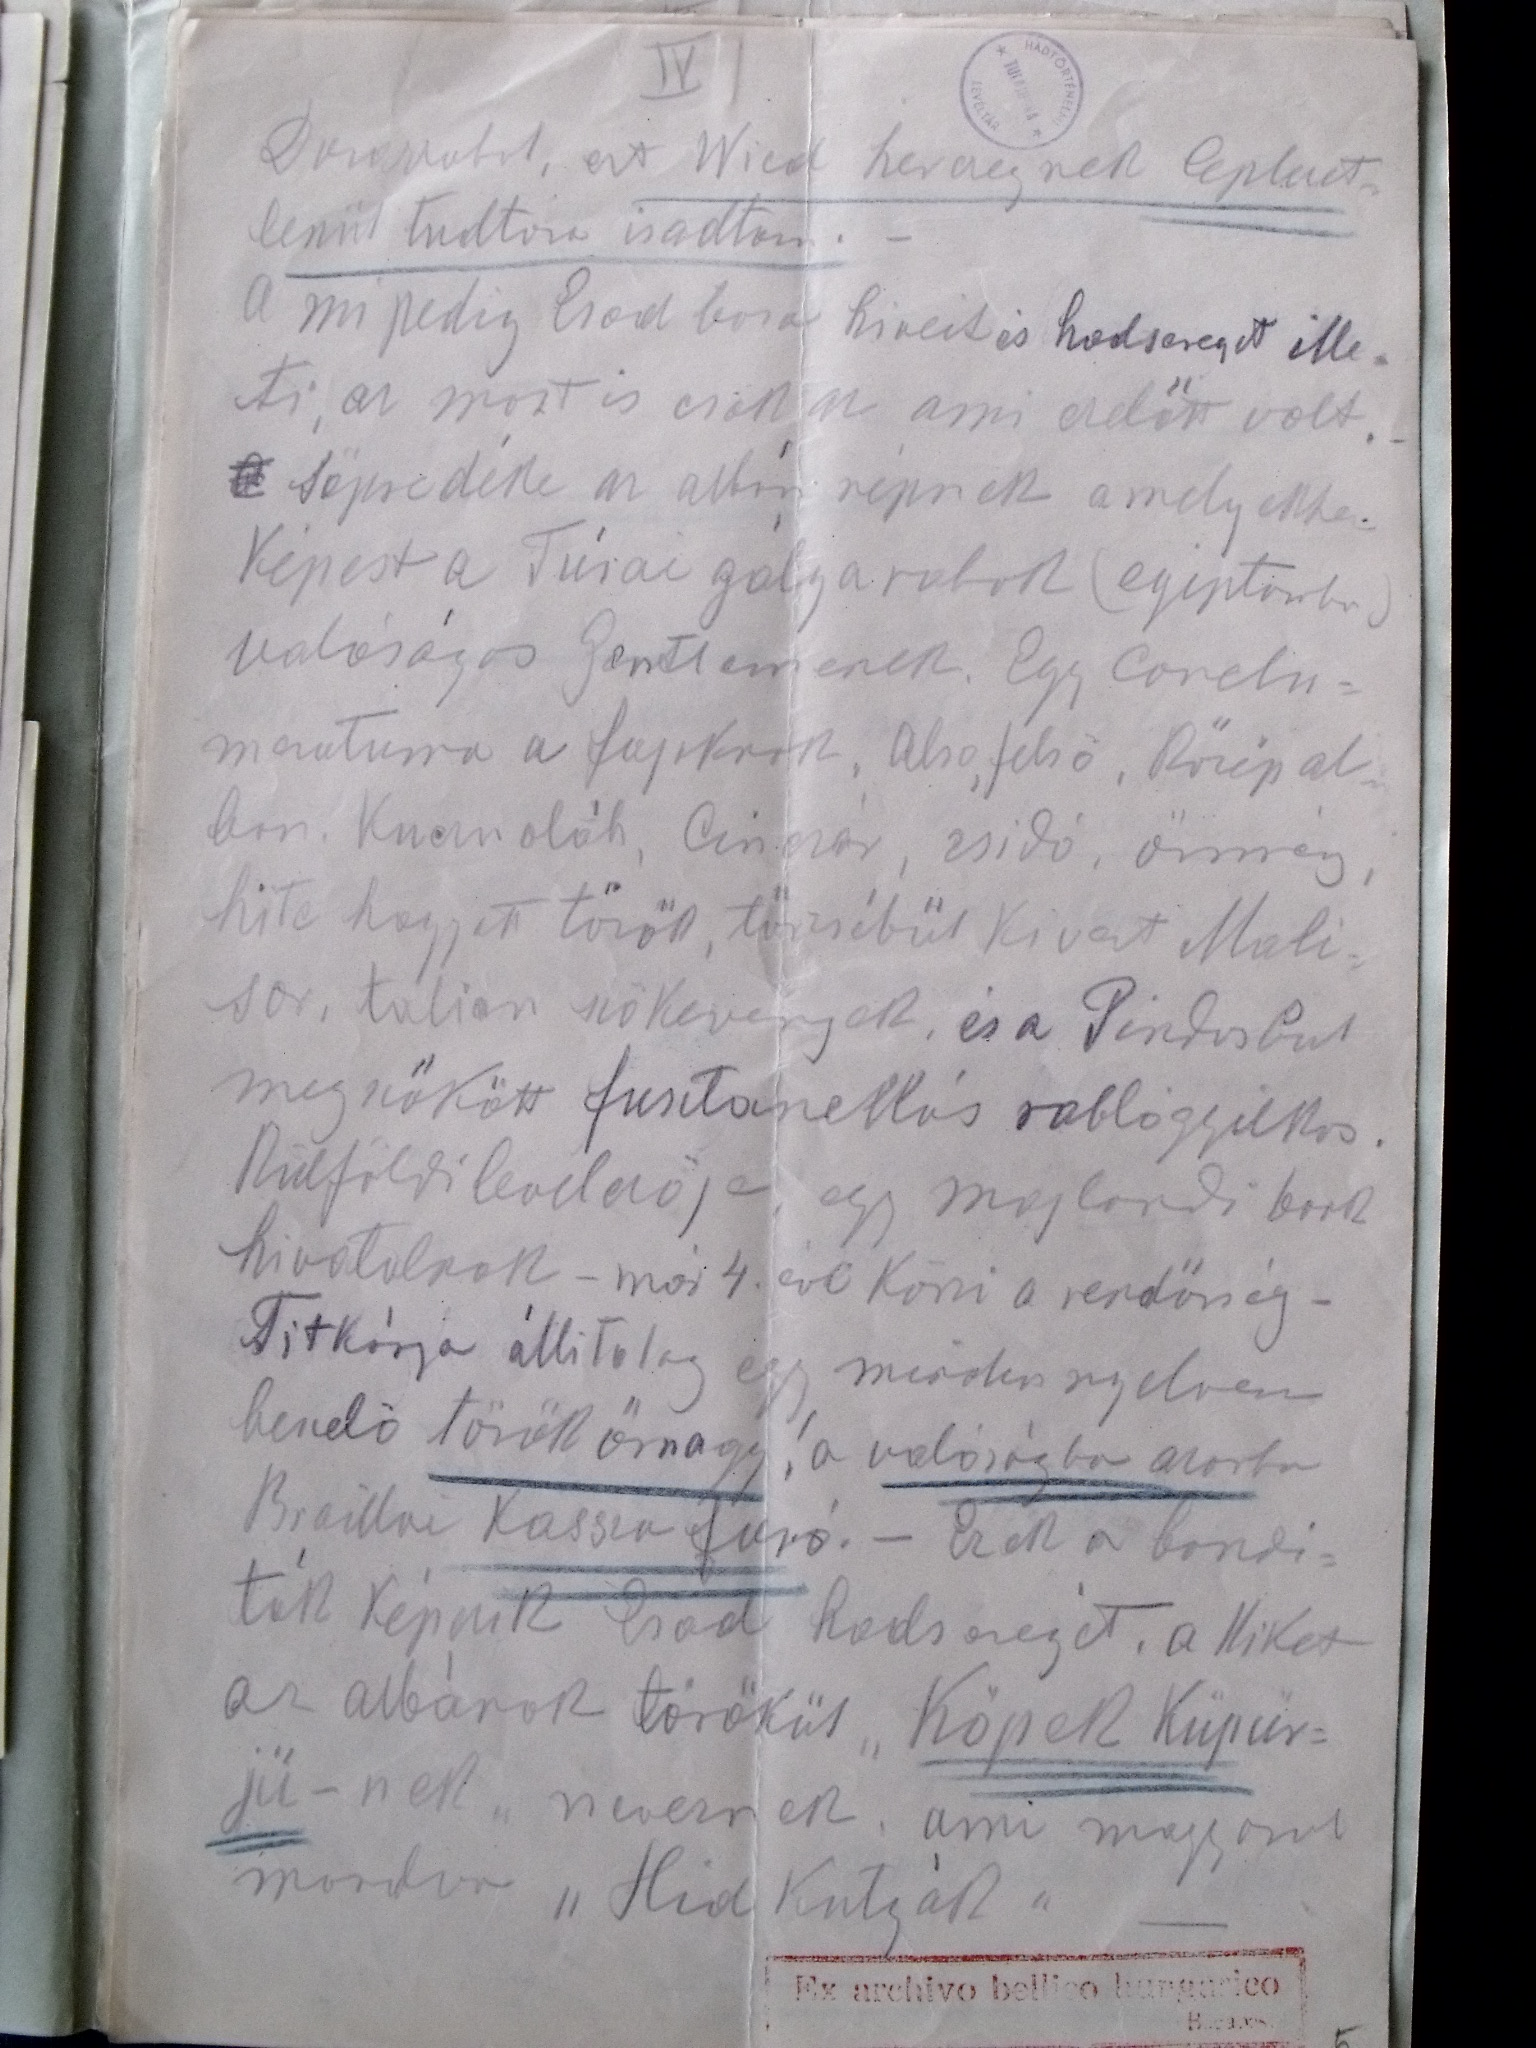 IV
HADTÖRTÉNELMI LEVÉLTÁR
Durazzobol, ezt Wied hercegnek leplezet-
lenül tudtára is adtam. -
A mi pedig Esad basa hiveit és hadsereget ille-
ti, az most is csak az ami azelött volt. -
söpredéke az albán népnek amelyekhez
Képest a Túrai gályarabok (egiptomba)
valóságos Gentlemenek. Egy Conclu-
meratuma a fapknak, Also, felsö, Közép al-
ban. Kuczaoláh, Cinczár, zsidó, örmény,
hite hagyott török, törzséböl Kivert Mali-
sor, talian szökevények, és a Pindosbul
megszökött fusztanellás rablógyilkos.
Külföldi levelezöje, egy majlandi bank
hivatalnok - már 4. éve Körzi a rendörség -
Titkárja állitolag egy minden nyelven
beszelö török örnagy, a valóságba azonba
Braillai Kassza furó. - Ezek a bandi-
ták Képezik Esad hadseregét. a Kiket
az albánok törökül „Köpek Küpür-
jü - nek „ neveznek, ami magyarul
mondva „Hid Kutyák"
Ex archivo bellico hungarico
5